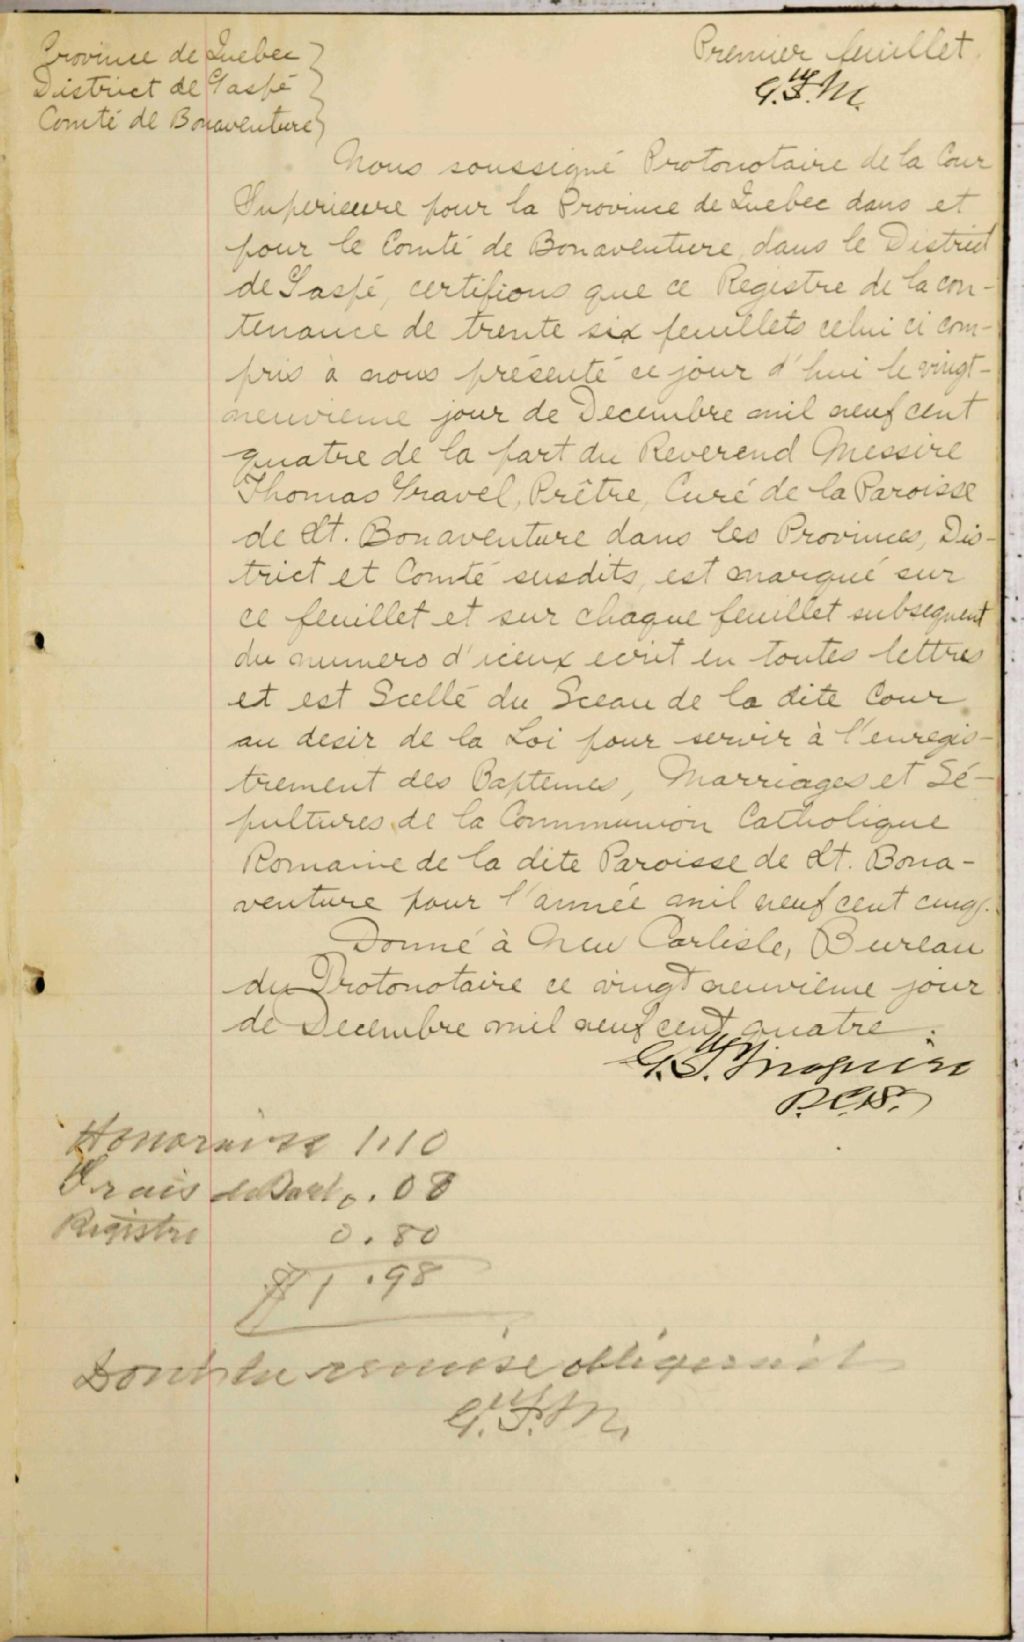 Province de Quebec
District de Gaspé
Comté de Bonaventure
Premier feuillet
G. F. M.
Nous soussigné Protonotaire de la Cour
Superieure pour la Province de Quebec dans et
pour le Comté de Bonaventure, dans le District
de Gaspé, certifions que ce Registre de la con-
tenance de trente six feuillets celui ci com-
pris à nous présenté ce jour d'hui le vingt-
neuvieme jour de Decembre mil neuf cent
quatre de la part du Reverend Messire
Thomas Gravel, Prêtre, Curé de la Paroisse
de St. Bonaventure dans les Provinces, Dis-
trict et Comté susdits, est marqué sur
ce feuillet et sur chaque feuillet subsequent
du numero d'iceux ecrit en toutes lettres
et est Scellé du Sceau de la dite Cour
au desir de la Loi pour servir à l'enregis-
trement des Baptemes, Marriages et Sé-
pultures de la Communion Catholique
Romaine de la dite Paroisse de St. Bona-
venture pour l'année mil neuf cent cinq.
Donné à New Carlisle, Bureau
du Protonotaire ce vingt neuvième jour
de Decembre mil neuf cent quatre.
G. F. Maguire
P.C.S.
Honoraires 1.10
Frais de Port 0.08
Registre 0.80
$1.98
Dont la remise obligerait
G. F. M.